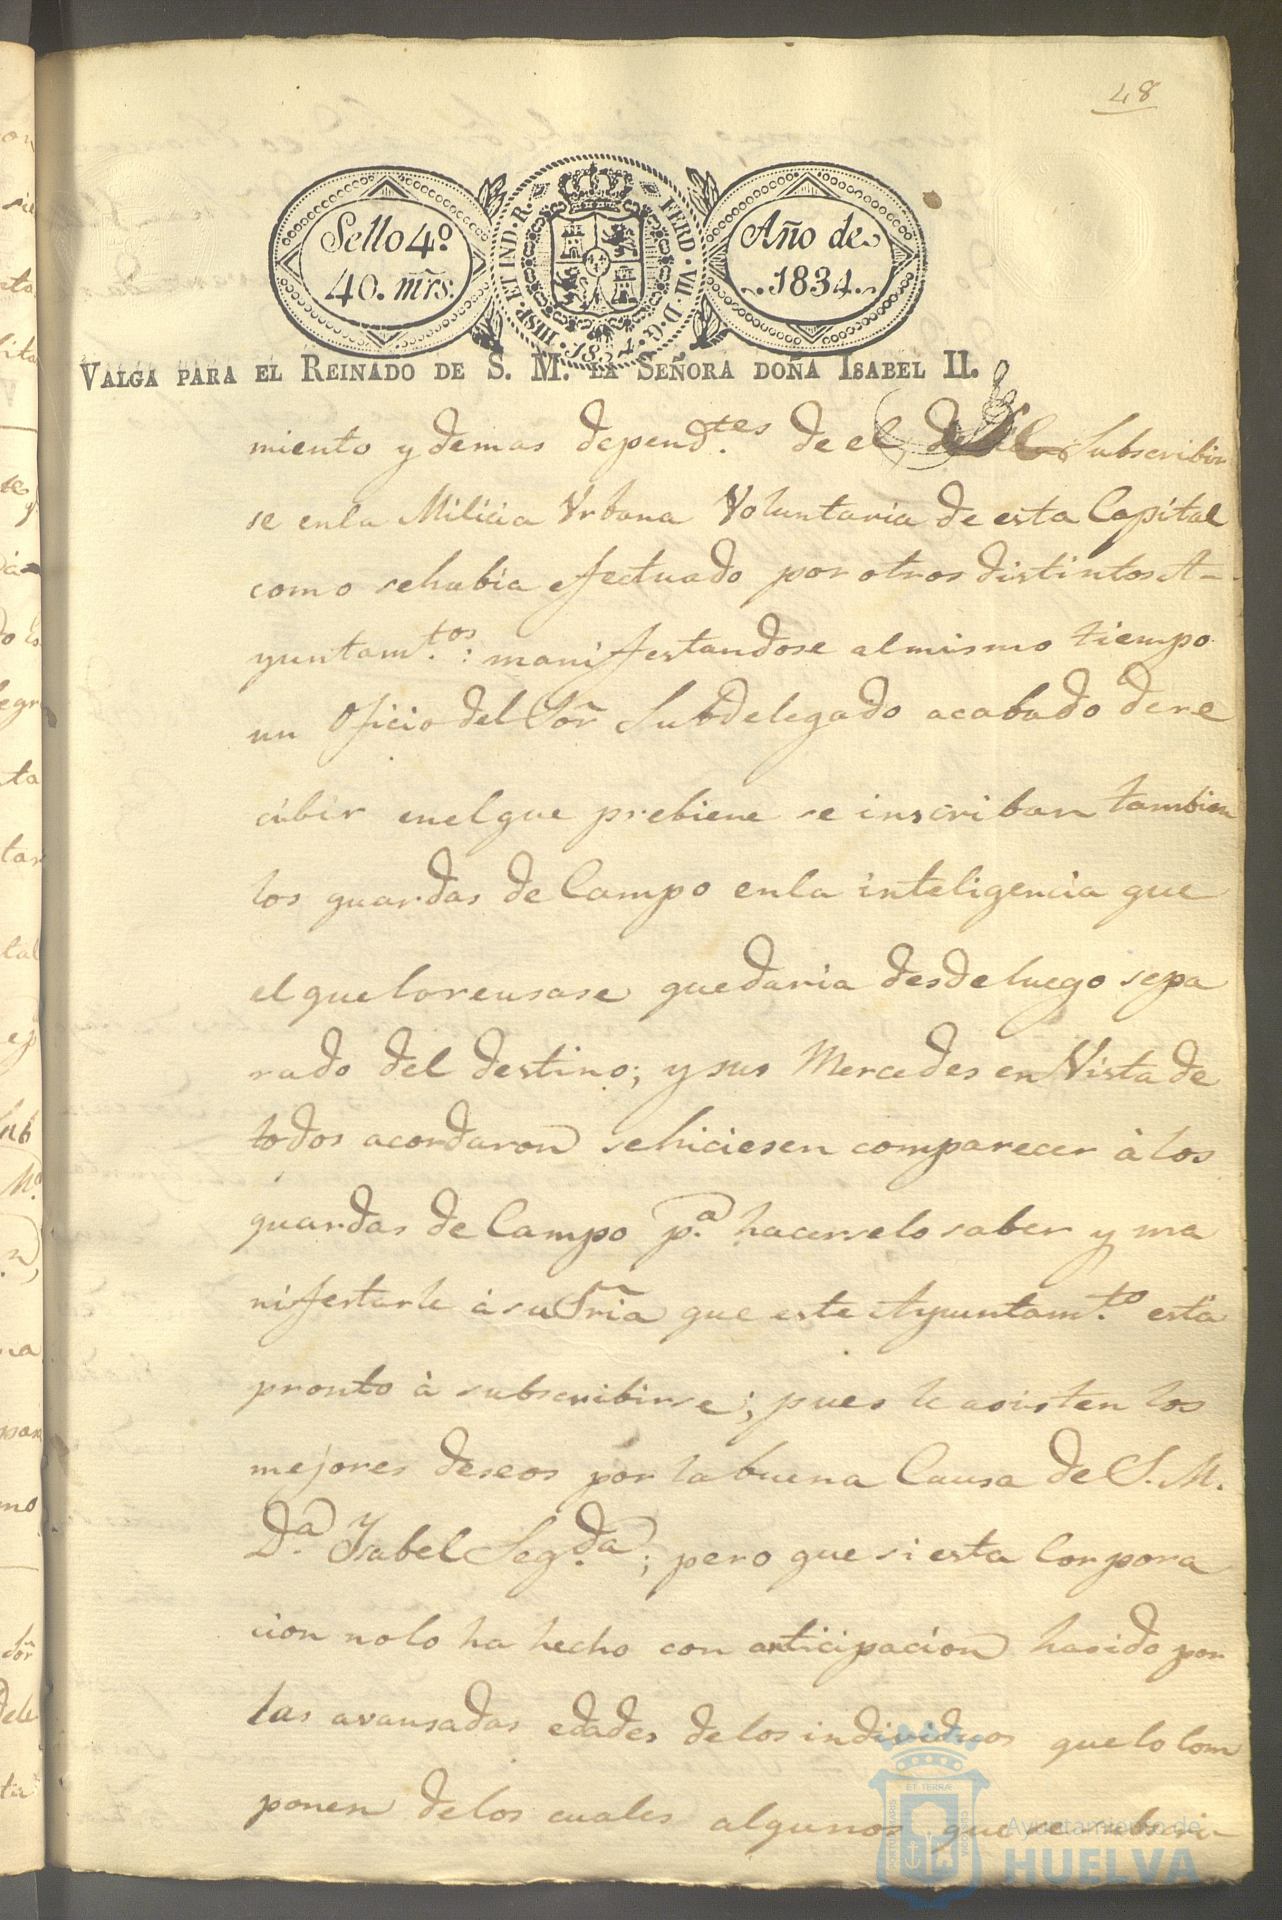 48
Sello 4º
40. mrs.
HISP. ET IND. R. FERD. VII. D. G. 1834.
Año de
1834.
VALGA PARA EL REINADO DE S. M. LA SEÑORA DOÑA ISABEL II.
miento y demas depend.tes de el, Subscribir
se enla Milicia Vrbana Voluntaria de esta Capital
como sehabia efectuado por otros distintos A-
yuntam.tos: manifestandose almismo tiempo
un Oficio del Sor Subdelegado acabado dere
cibir enelque prebiene se inscriban tambien
los guardas de Campo enla inteligencia que
el quelo reusase quedaria desdeluego sepa
rado del destino; y sus Mercedes en Vista de
todos acordaron sehiciesen comparecer à los
guardas de Campo p.a hacerselo saber y ma
nifestarle à su Sria que este Ayuntam.to està
pronto à subscribirse; pues le asisten los
mejores deseos por la buena Causa de S. M.
D.a Ysabel Seg.da; pero que si esta Corpora
cion nolo ha hecho con anticipacion hasido por
las avansadas edades delos individuos quelo Com
ponen delos cuales algunos que se subscri-
ET TERRÆ
Ayuntamiento de
HUELVA